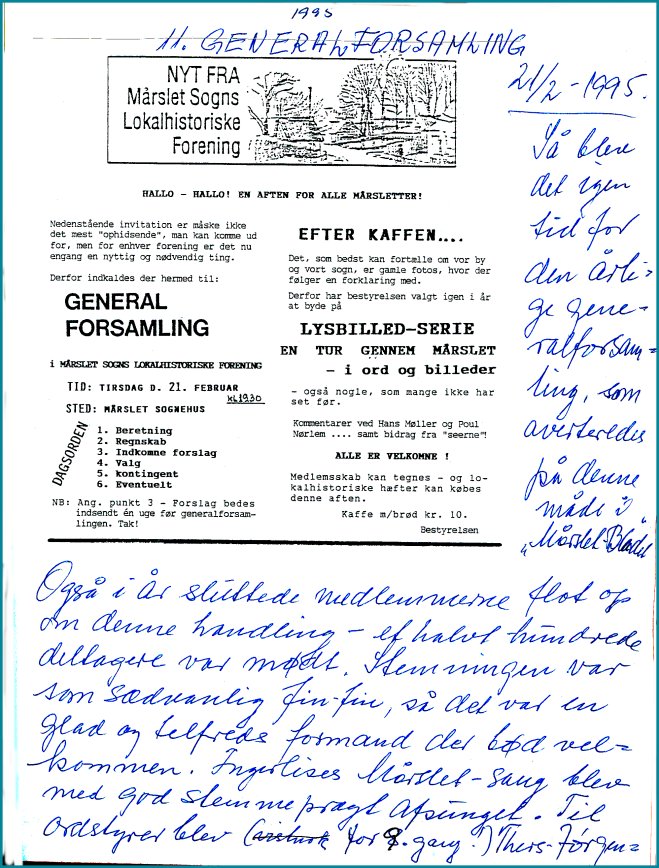 1995
11. GENERALFORSAMLING
NYT FRA
Mårslet Sogns
Lokalhistoriske
Forening
21/2 - 1995.
Så blev
det igen
tid for
den årli=
ge gene=
ralforsam=
ling, som
averteredes
på denne
måde i
„Mårslet-Bladet"
HALLO - HALLO! EN AFTEN FOR ALLE MÅRSLETTER!
Nedenstående invitation er måske ikke
det mest "ophidsende", man kan komme ud
for, men for enhver forening er det nu
engang en nyttig og nødvendig ting.
Derfor indkaldes der hermed til:
GENERAL
FORSAMLING
i MÅRSLET SOGNS LOKALHISTORISKE FORENING
TID: TIRSDAG D. 21. FEBRUAR
kl. 19.30
STED: MÅRSLET SOGNEHUS
DAGSORDEN
1. Beretning
2. Regnskab
3. Indkomne forslag
4. Valg
5. kontingent
6. Eventuelt
NB: Ang. punkt 3 - Forslag bedes
indsendt én uge før generalforsam-
lingen. Tak!
EFTER KAFFEN....
Det, som bedst kan fortælle om vor by
og vort sogn, er gamle fotos, hvor der
følger en forklaring med.
Derfor har bestyrelsen valgt igen i år
at byde på
LYSBILLED-SERIE
EN TUR GENNEM MÅRSLET
- i ord og billeder
- også nogle, som mange ikke har
set før.
Kommentarer ved Hans Møller og Poul
Nørlem .... samt bidrag fra "seerne"!
ALLE ER VELKOMNE !
Medlemsskab kan tegnes - og lo-
kalhistoriske hæfter kan købes
denne aften.
Kaffe m/brød kr. 10.
Bestyrelsen
Også i år sluttede medlemmerne flot op
om denne handling - et halvt hundrede
deltagere var mødt. Stemningen var
som sædvanlig fin-fin, så det var en
glad og tilfreds formand der bød vel=
kommen. Ingerlises Mårslet-sang blev
med god stemmepragt afsunget. Til
ordstyrer blev ( for 9. gang!) Thers-Jørgen=